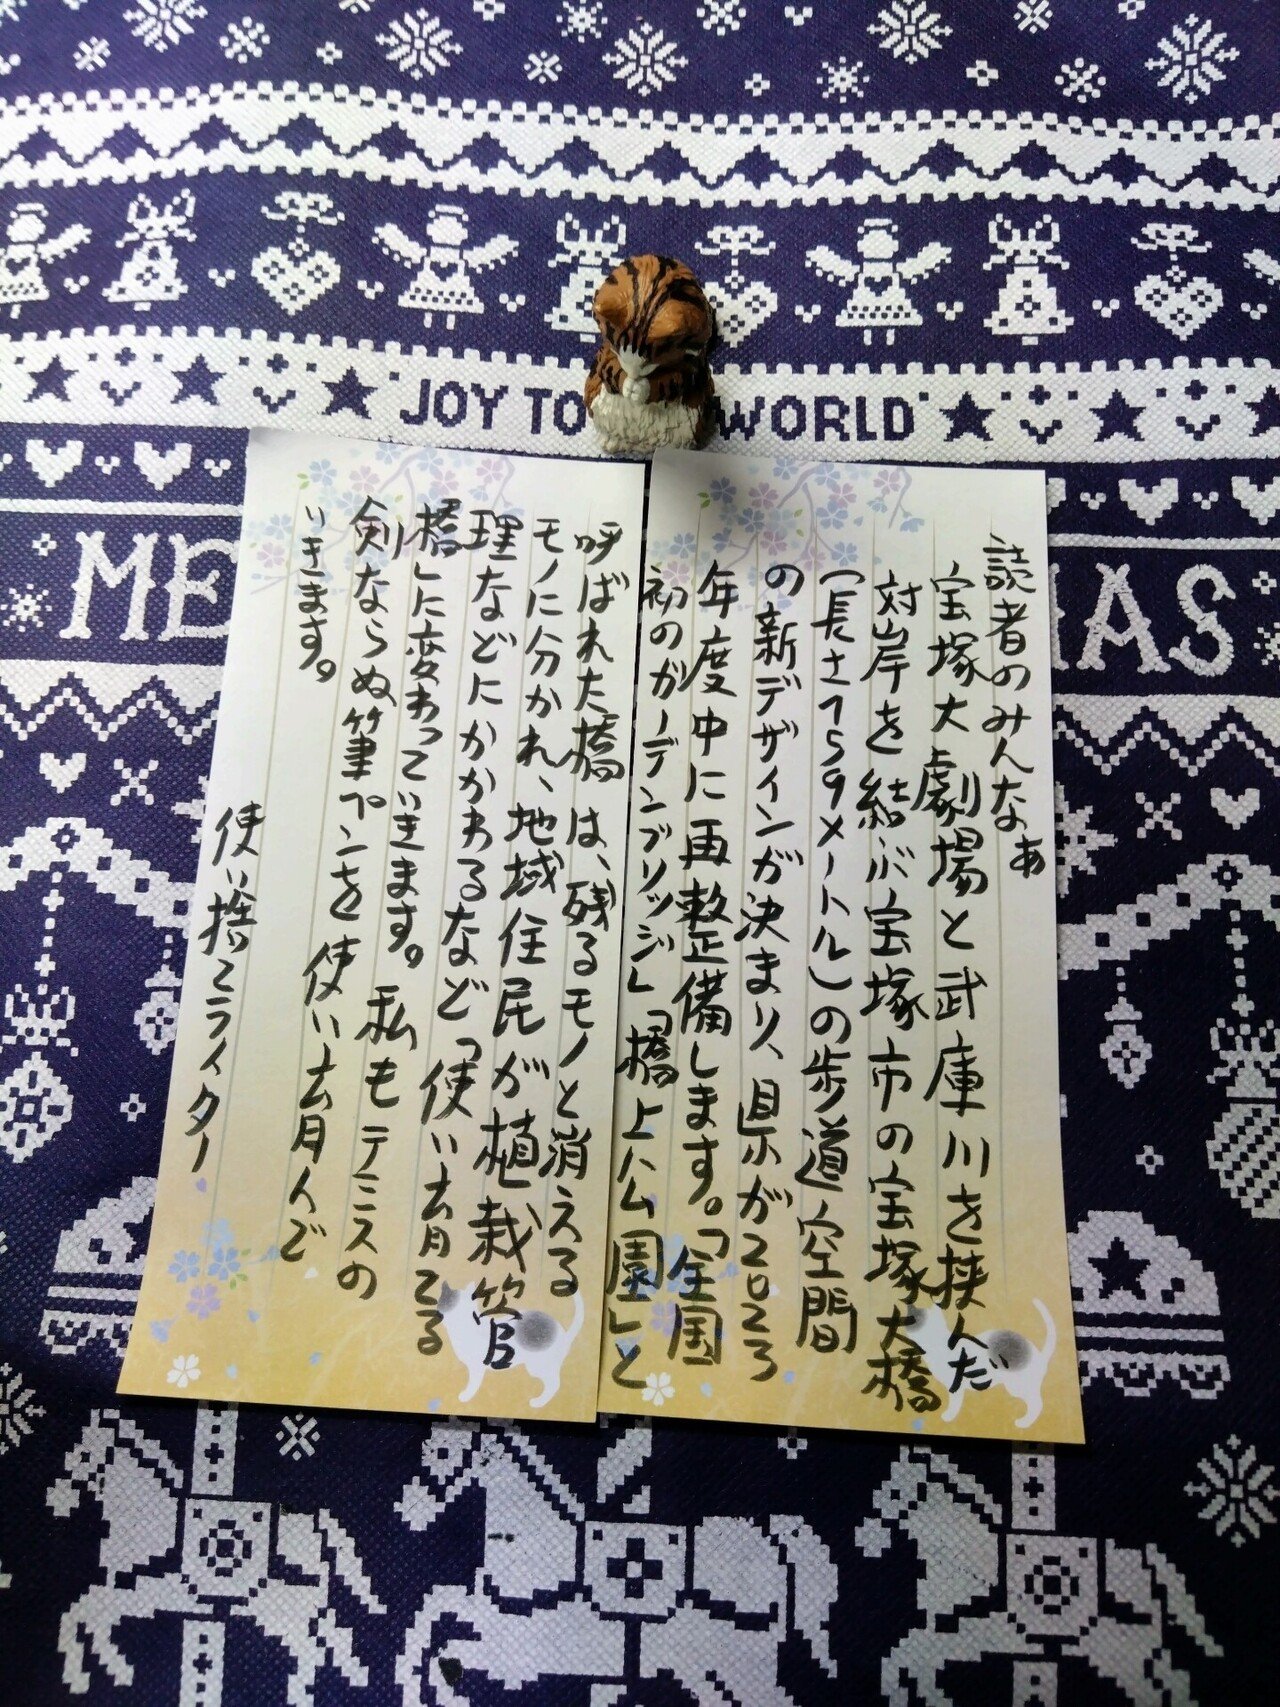 JOY TO WORLD
ME AS
読者のみんなぁ
宝塚大劇場と武庫川を挟んだ
対岸を結ぶ宝塚市の宝塚大橋
(長さ159メートル)の歩道空間
の新デザインが決まり、県が2023
年度中に再整備します。「全国
初のガーデンブリッジ」「橋上公園」と
呼ばれた橋は、残るモノと消える
モノに分かれ、地域住民が植栽管
理などにかかわるなど「使い去月てる
橋」に変わっていきます。私もテミスの
剣ならぬ筆ペンを使い去月人で
いきます。
使い捨てライター